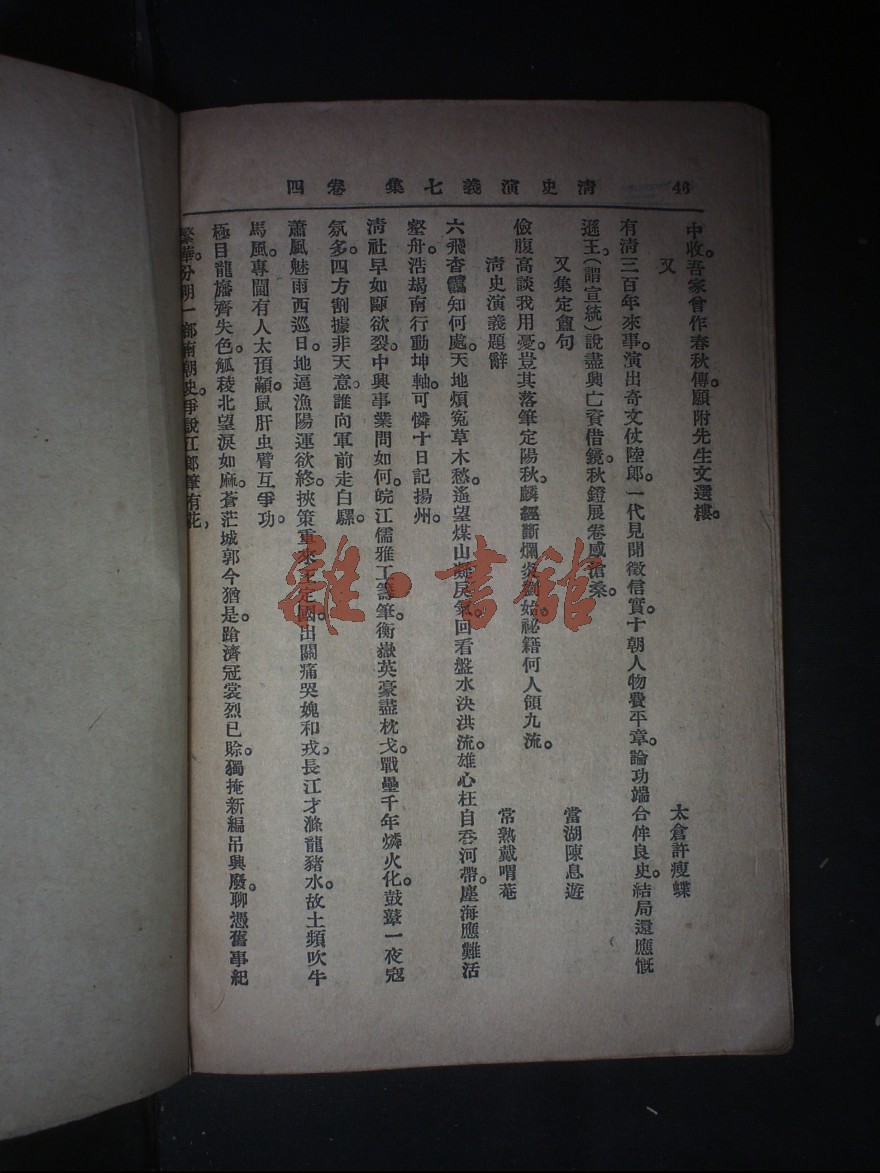 清史演義七集 卷四 46
中收。吾家曾作春秋傳。願附先生文選樓。
又 太倉許瘦蝶
有清三百年來事。演出奇文仗陸郎。一代見聞徵信實。十朝人物費平章。論功端合侔良史。結局還應慨
遜王。(謂宣統)說盡興亡資借鏡。秋鐙展卷感滄桑。
又集定盦句 當湖陳息遊
儉腹高談我用憂。豈其落筆定陽秋。麟經斷爛炎劉始。祕籍何人領九流。
清史演義題辭 常熟戴啁菴
六飛杳靄知何處。天地煩冤草木愁。遙望煤山凝戾氣。回看盤水決洪流。雄心枉自吞河帶。塵海應難活
壑舟。浩蝎南行動坤軸。可憐十日記揚州。
淸社早如甌欲裂。中興事業問如何。皖江儒雅工籌筆。衡嶽英豪盡枕戈。戰壘千年燐火化。鼓鼙一夜寇
氛多。四方割據非天意。誰向軍前走白騾。
蕭風魅雨西巡日。地逼漁陽運欲終。挾策重來王定國。出關痛哭媿和戎。長江才滌龍豬水。故土頻吹牛
馬風。專閫有人太頂顢。鼠肝虫臂互爭功。
極目龍旛齊失色。觚稜北望淚如麻。蒼茫城郭今猶是。蹌濟冠裳烈已賒。獨掩新編吊興廢。聊憑舊事紀
繁華。分明一部南朝史。爭說江郎筆有花。
雜·書館